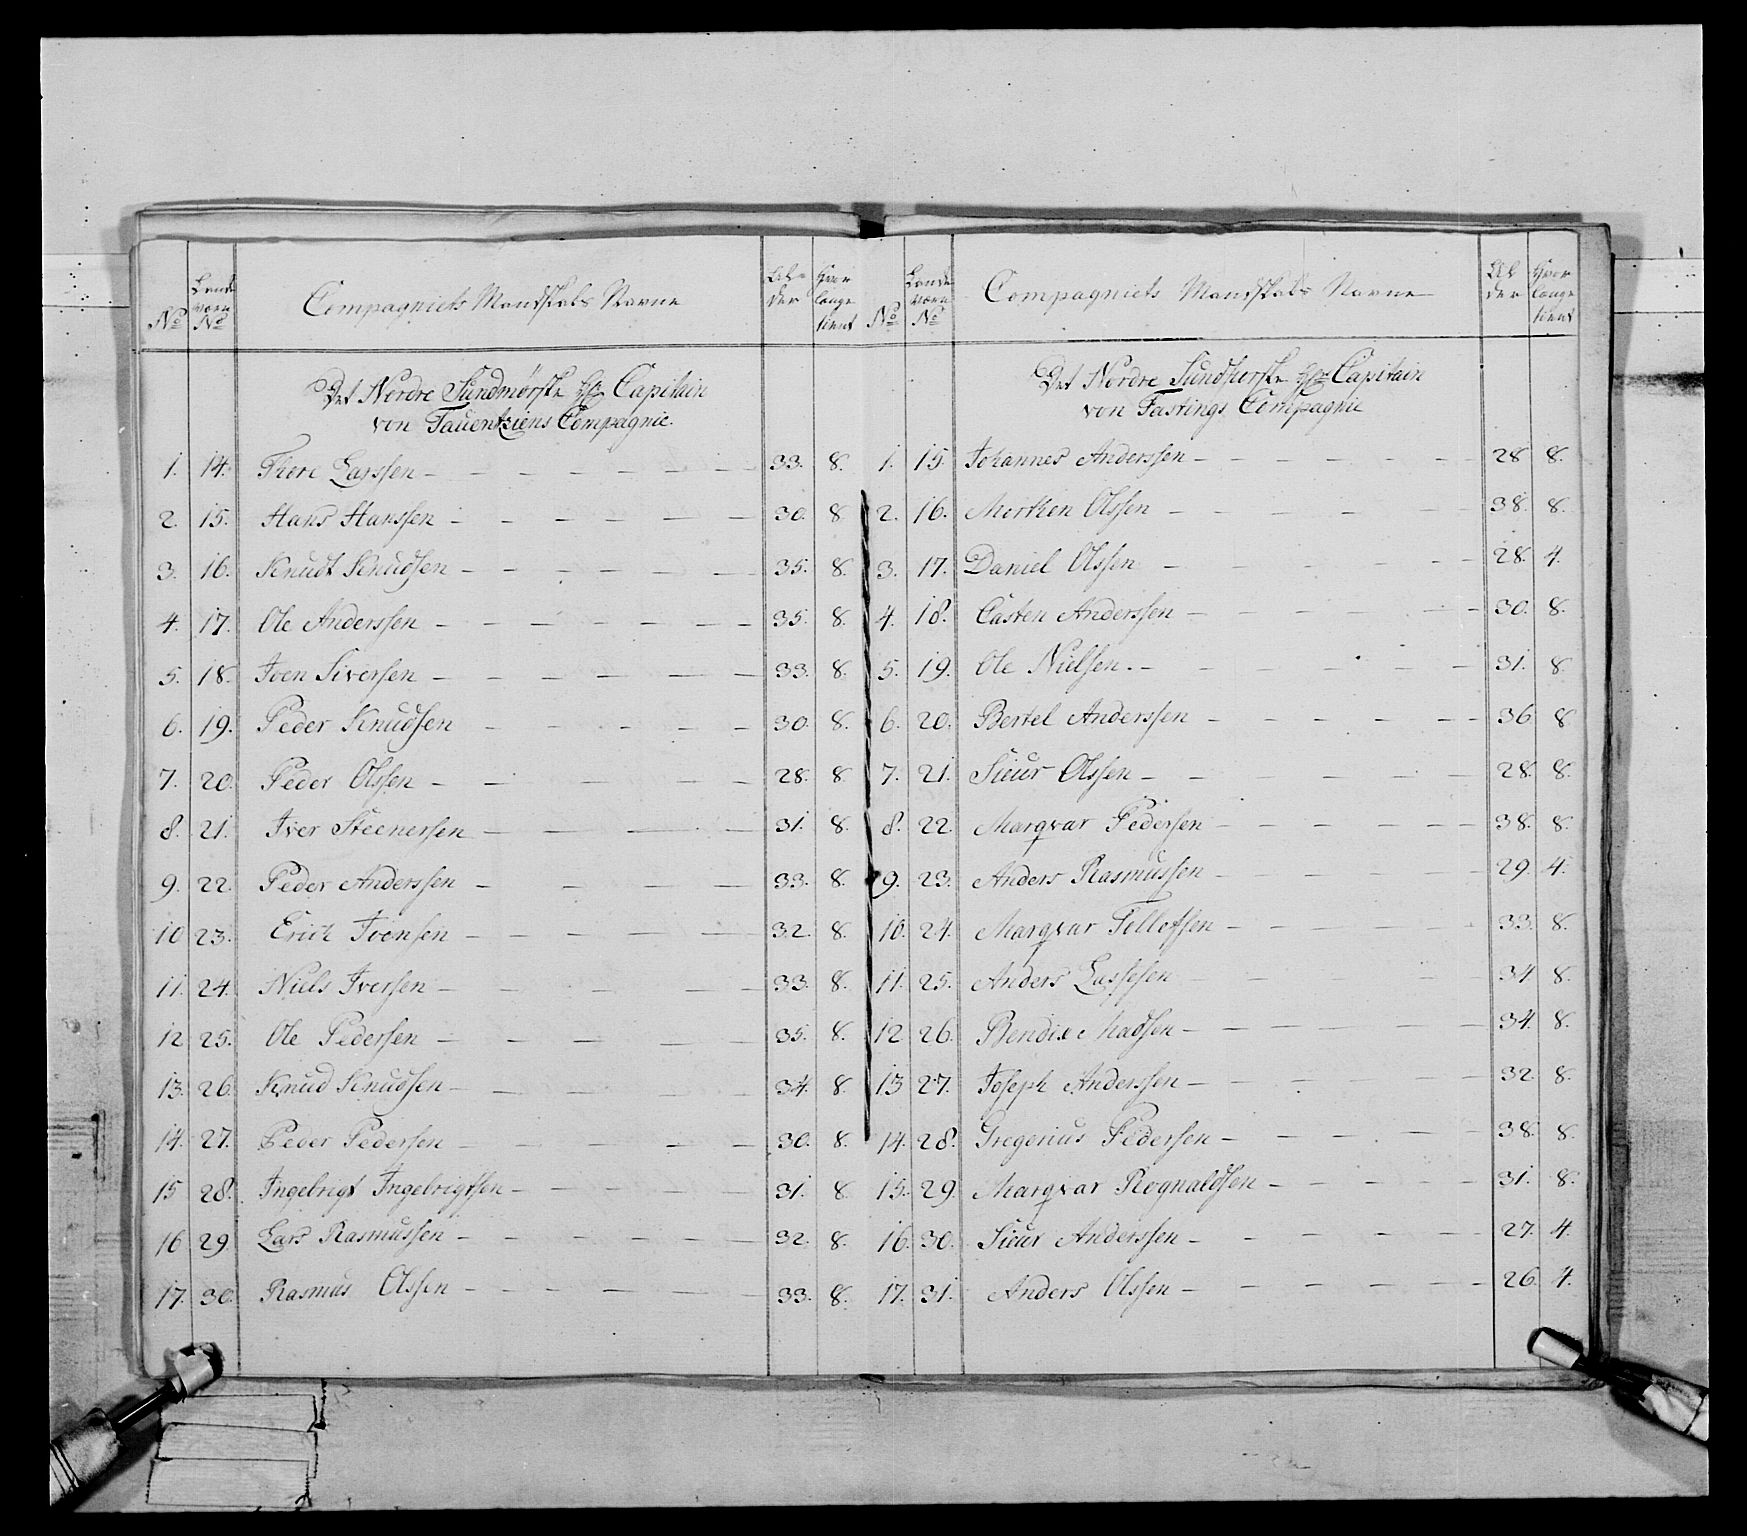 No
Lande
værn
No
Compagniets Mandskabs Navne
Al-
der
Hvor
lange
tient
Det Nordre Sundmørske Hr Capitain
von Tauentziens Compagnie.
1. 14. Thore Larssen 33. 8.
2. 15. Hans Hanssen 30. 8
3. 16. Knudt Knudsen 35. 8.
4. 17. Ole Anderssen 35. 8.
5. 18. Joen Siversen 33. 8.
6. 19. Peder Knudsen 30. 8.
7. 20. Peder Olssen 28. 8
8. 21. Iver Steenersen 31. 8.
9. 22. Peder Anderssen 33. 8.
10 23. Erich Joensen 32. 8.
11. 24. Niels Iversen 33. 8.
12 25. Ole Pedersen 35. 8.
13. 26. Knud Knudsen 34. 8.
14. 27. Peder Pedersen 30. 8.
15 28. Ingebrigt Ingebrigtsen 31. 8
16 29. Lars Rasmussen 32. 8.
17. 30. Rasmus Olssen 33. 8.
No
Lande
værn
No
Compagniets Mandskabs Navne
Al
der
Hvor
lange
tient
Det Nordre Hr Capitain
von Fastings Compagnie
1. 15. Johannes Anderssen 28 8.
2. 16. Morthen Olssen 38. 8.
3. 17. Daniel Olssen 28. 4.
4. 18. Casten Anderssen 30. 8.
5. 19. Ole Nielsen. 31. 8.
6. 20. Bertel Anderssen 36 8
7. 21. Sieur Olssen 28. 8.
8. 22. Marqvar Pedersen 38. 8.
9. 23. Anders Rasmussen 29. 4.
10. 24. Marqvar Tellefsen 33. 8.
11. 25. Anders Lassesen 34 8.
12 26. Bendix Madsen 34. 8.
13 27. Joseph Anderssen 32 8.
14. 28. Gregorius Pedersen 38. 8.
15. 29 Marqvar Rognaldsen 31. 8.
16. 30. Sieur Anderssen 27. 4.
17. 31. Anders Olssen 26. 4.